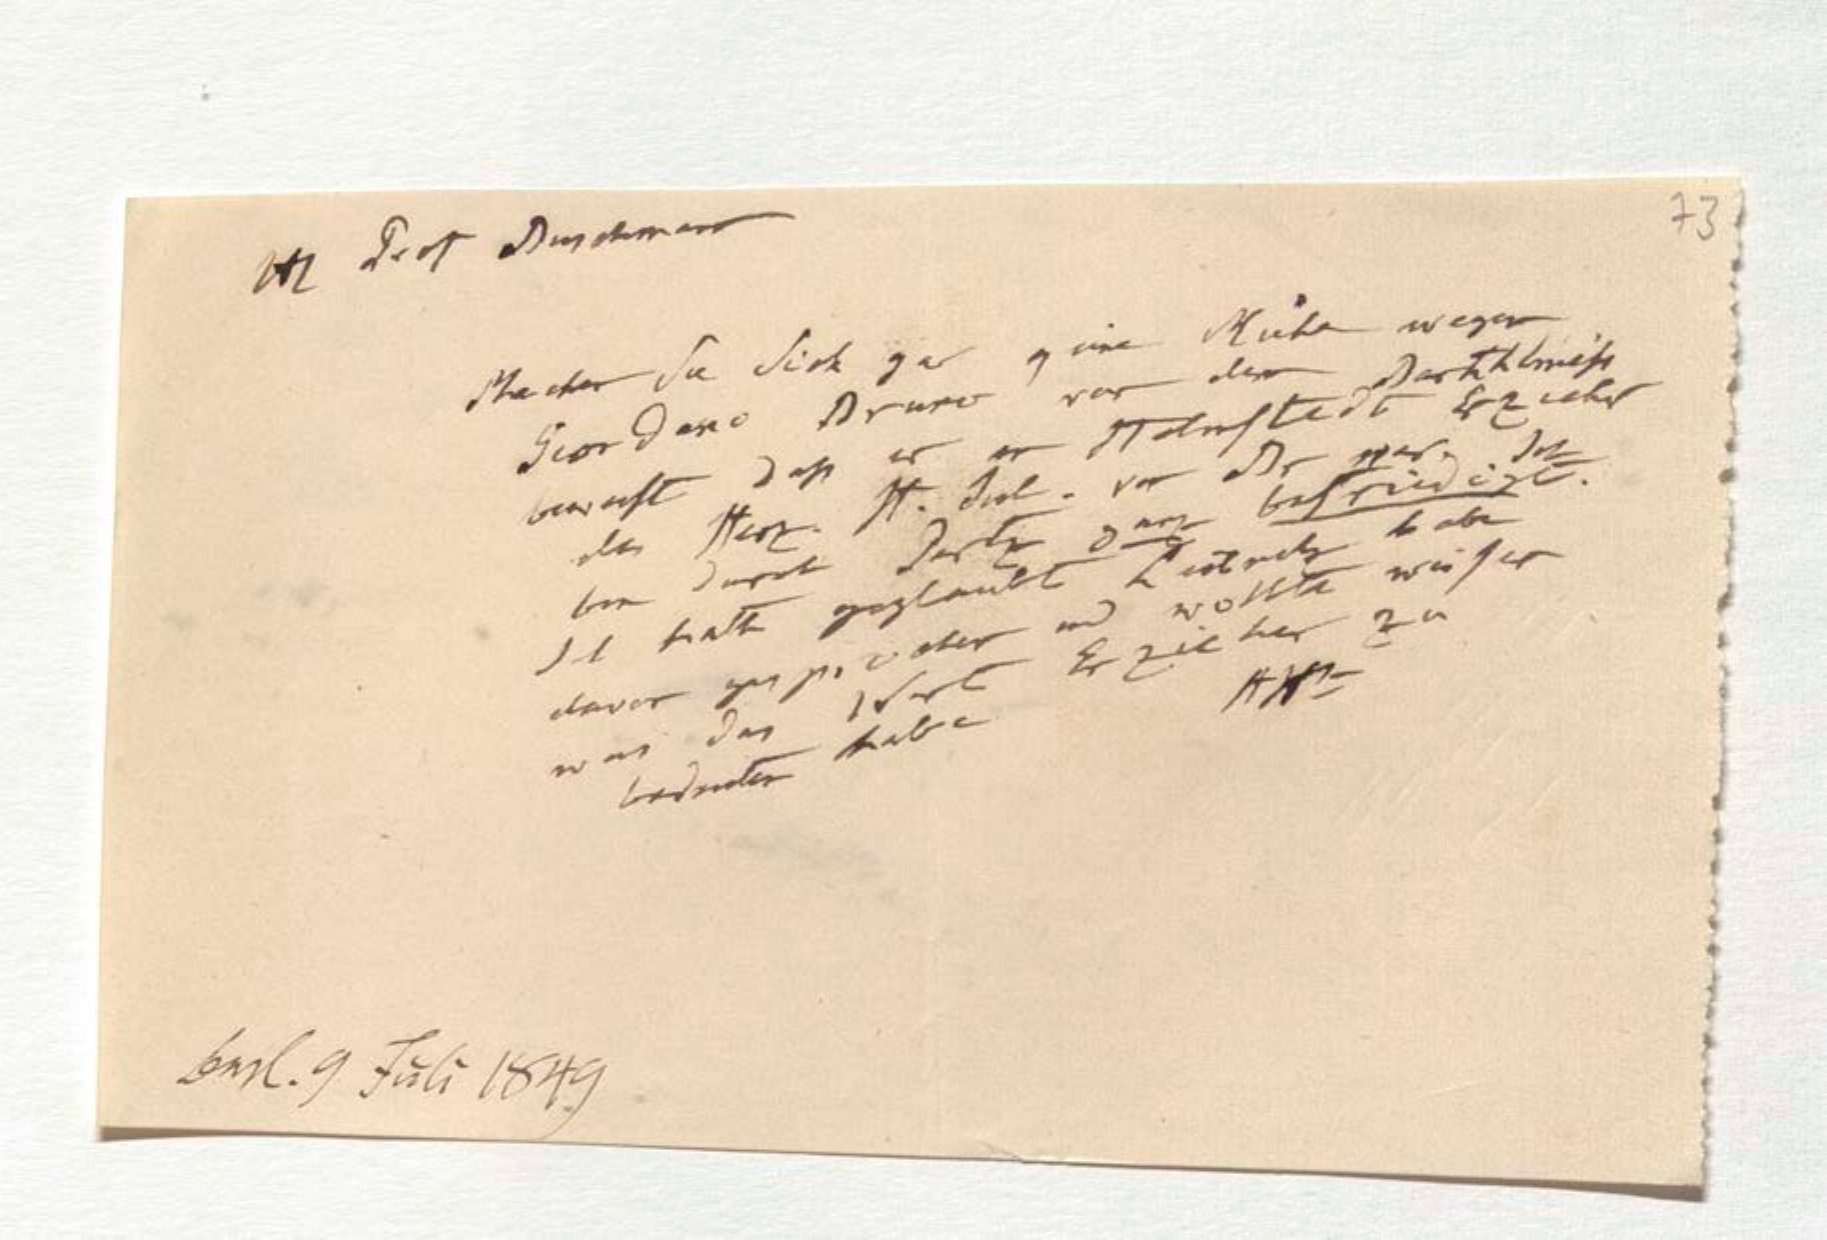 73
H Prof Buschmann
Machen Sie Sich gar keine Mühe wegen
Giordano Bruno von dem Bartholmeß
beweist daß er in Helmstedt Erzieher
des Herz. H. Jul. von Br war. Ich
bin durch ganz befriedigt.
Ich hatte geglaubt Leibnitz habe
davon gesprochen und wollte wissen
was das Wort Erzieher zu
bedeuten habe
AHt
9 Juli 1849